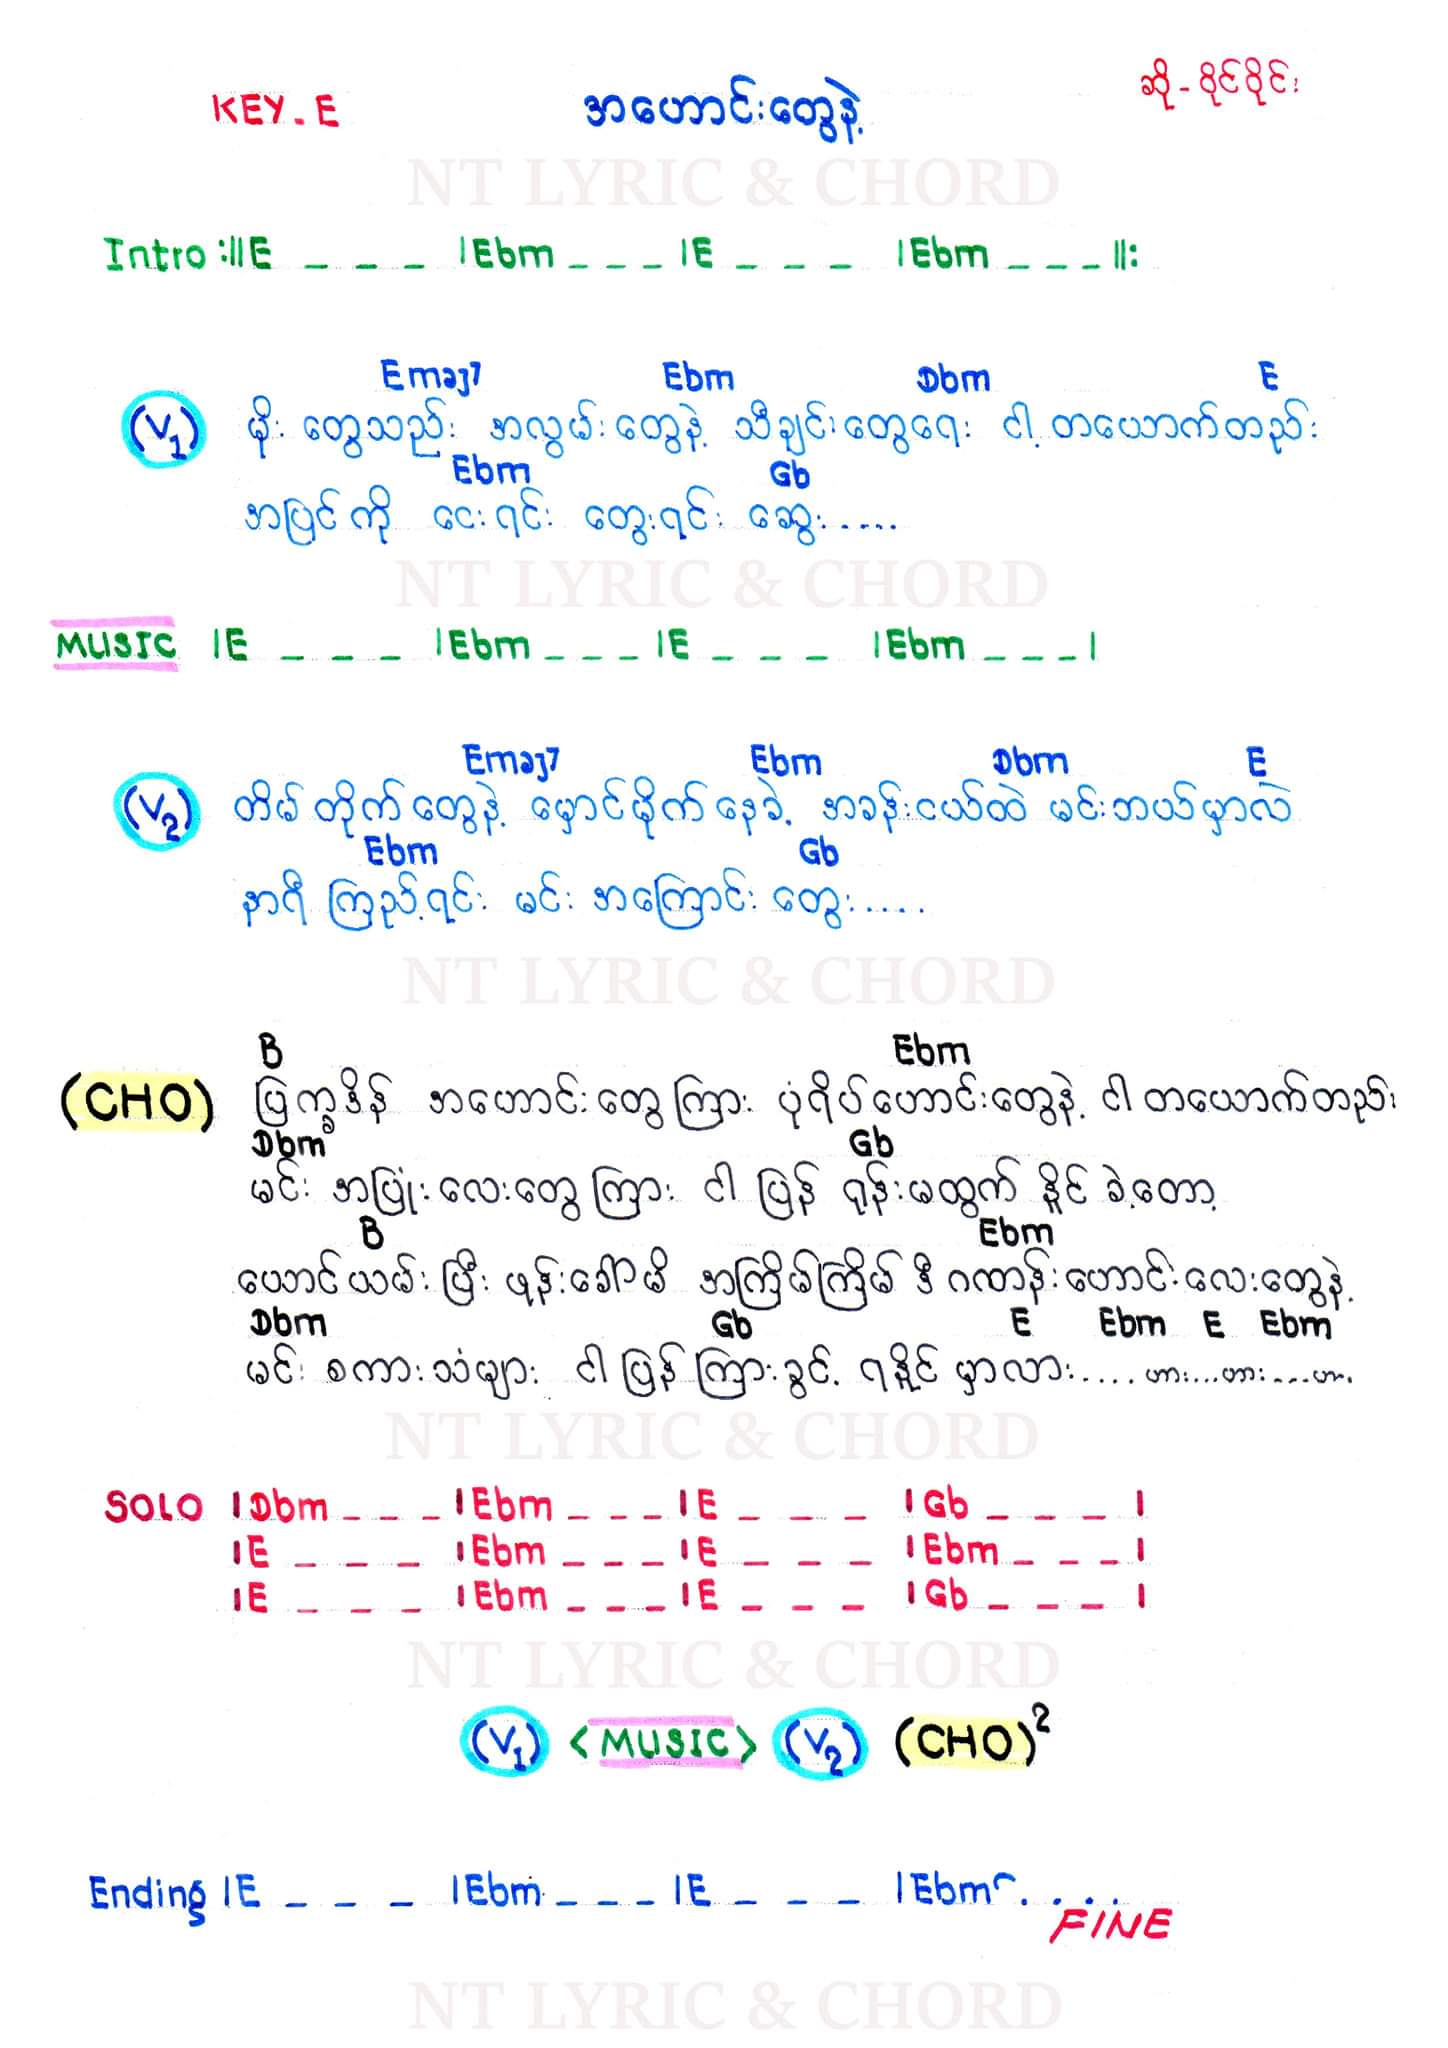 KEY - E အဟောင်းတွေနဲ့ ဆို - ဝိုင်ဝိုင်း
NT LYRIC & CHORD
Intro :||E _ _ _ |Ebm _ _ _ |E _ _ _ |Ebm _ _ _ ||:
Emaj7 Ebm Dbm E
(V1) မိုး တွေသည်း အလွမ်းတွေနဲ့ သီချင်းတွေရေး ငါ့ တယောက်တည်း
Ebm Gb
အပြင်ကို ငေးရင်း တွေးရင်း ဆွေး.....
NT LYRIC & CHORD
MUSIC |E _ _ _ |Ebm _ _ _ |E _ _ _ |Ebm _ _ _ |
Emaj7 Ebm Dbm E
(V2) တိမ်တိုက်တွေနဲ့ မှောင်မိုက်နေခဲ့ အခန်းငယ်ထဲ မင်းဘယ်မှာလဲ
Ebm Gb
နာရီ ကြည့်ရင်း မင်း အကြောင်း တွေး.....
NT LYRIC & CHORD
B Ebm
(CHO) ပြက္ခဒိန် အဟောင်းတွေကြား ပုံရိပ်ဟောင်းတွေနဲ့ ငါ တယောက်တည်း
Dbm Gb
မင်း အပြုံးလေးတွေကြား ငါ ပြန် ရုန်းမထွက် နိုင် ခဲ့တော့
B Ebm
ယောင်ယမ်းပြီး ဖုန်းခေါ်မိ အကြိမ်ကြိမ် ဒီ ဂဏာန်းဟောင်းလေးတွေနဲ့
Dbm Gb E Ebm E Ebm
မင်း စကားသံများ ငါ ပြန် ကြားခွင့် ရနိုင် မှာလား.... ဟား...ဟား....ဟာ.
NT LYRIC & CHORD
SOLO |Dbm _ _ _ |Ebm _ _ _ |E _ _ _ |Gb _ _ _ |
|E _ _ _ |Ebm _ _ _ |E _ _ _ |Ebm _ _ _ |
|E _ _ _ |Ebm _ _ _ |E _ _ _ |Gb _ _ _ |
NT LYRIC & CHORD
(V1) <MUSIC> (V2) (CHO)2
Ending |E _ _ _ |Ebm _ _ _ |E _ _ _ |Ebm ....
FINE
NT LYRIC & CHORD